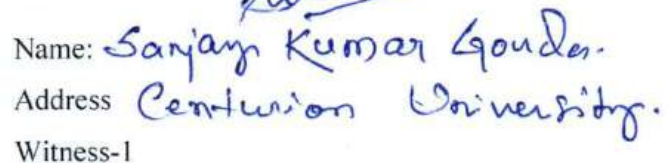 Name: Sanjay Kumar Gouda.
Address Centurion University.
Witness-1